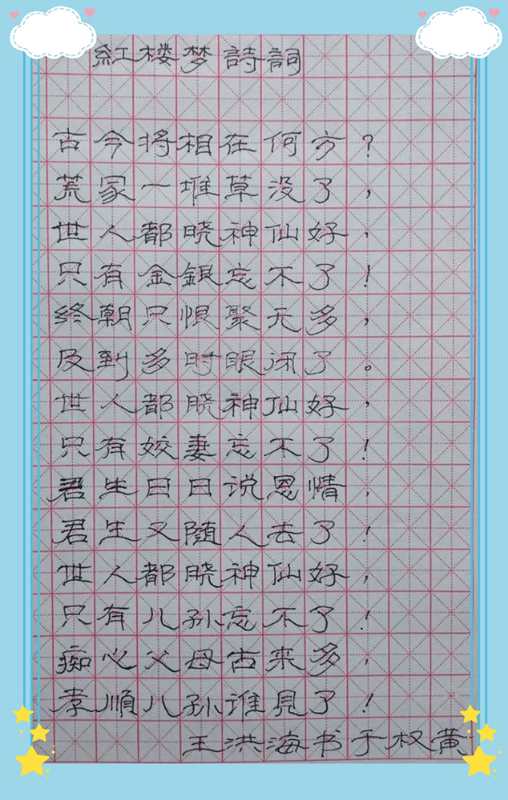 紅楼梦詩詞
古今将相在何方？
荒冢一堆草没了，
世人都晓神仙好，
只有金銀忘不了！
终朝只恨聚无多，
及到多时眼闭了。
世人都晓神仙好，
只有姣妻忘不了！
君生日日说恩情，
君生又随人去了！
世人都晓神仙好，
只有儿孙忘不了！
痴心父母古来多，
孝順儿孙谁見了！
王洪海书于权黄